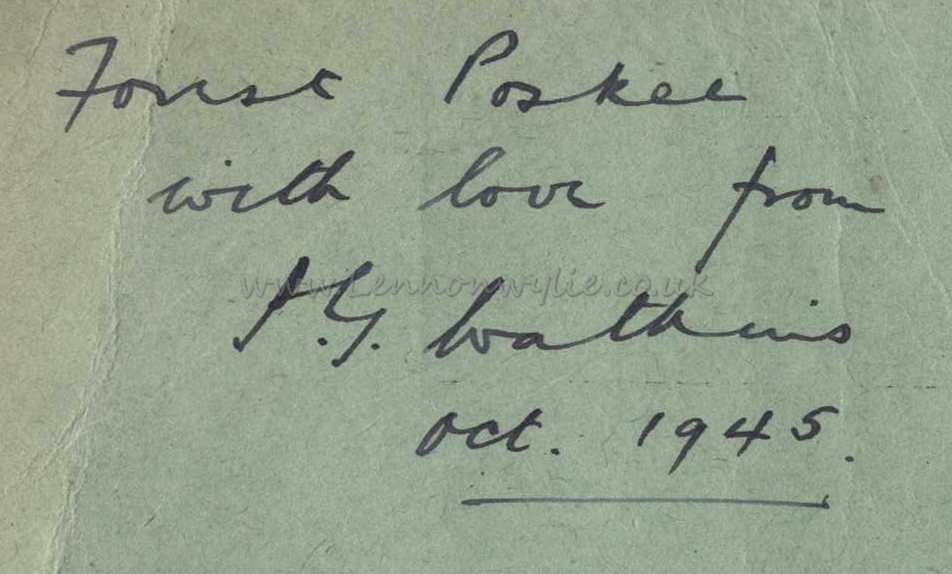 Forest Poskee
with love from
www.Lennonwylie.co.uk
J.G. Watkins
Oct. 1945.